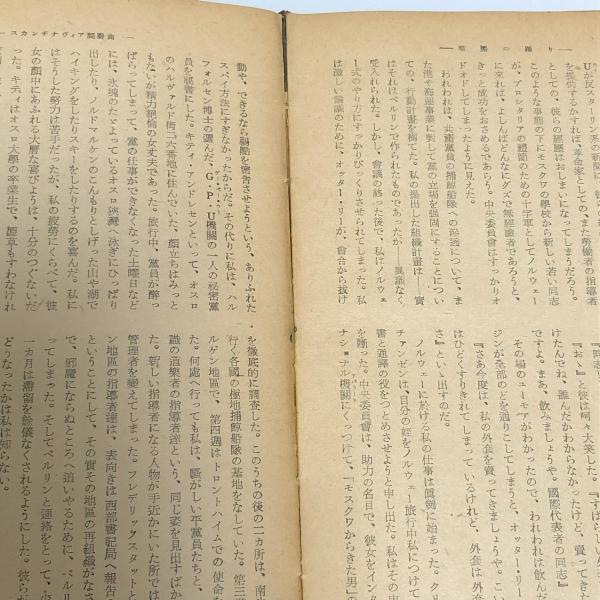 Uが反スターリン系の新聞に、
を提供するかすれば、革命家としての、また勞働者の指導者
としての、彼らの經歴はおしまいになってしまうだろう。
このような事態の下にモスクワの學校から新しい若い同志
が、プロレタリアの禮節のための十字軍としてノルウェー
に來れば、よしんばどんなにグズで無經論者であろうと、
きっと成功をおさめるであろう。中央委員會はすっかりオ
ドオドしてしまったように見えた。
われわれは、共産黨員の捕鯨船隊への滲透について、ま
た他の海運事業に對して黨の立場を強固にすることについ
ての、行動計畫を樹てた。私の提出した組織計畫は——實
はそれはベルリンで作られたものであったが——異議なく
受入れられた。しかし、會議の終った後で、私はノルウェ
ー式のやり方にすっかりびっくりさせられてしまった。私
は激しい論議のために、オッター・リーが、會合から拔け
『同志
『おゝ』と彼は呵々大笑した。『すばらしい
けたんでね、誰んだかわからなかったけど、賣ってきた
ですよ。まあ、飲みましょうや。國際代表者の同志』
その場のユーモアがわかったので、われわれは飲んだ
ジンが全部のどを通りこしてしまうと、オッター・リー
『さあ今度は、私の外套を賣ってきましょうや。こい
はひどくすりきれてしまっているけれど、外套は外套
さ』といい出すのだ。
ノルウェーに於ける私の仕事は眞劍に始まった。クリ
チャンゼンは、自分の姪をノルウェー旅行中私につけて
書と通譯の役をつとめさせようと申し出た。私はその申
を斷った。中央委員會は、助力の名目で、彼女をインタ
ナショナル機關にくっつけて、『モスクワからきた男』の
スカンヂナヴィア間奏曲
動や、できるなら腦髓を密告させようという、ありふれた
スパイ方法にすぎなかったからだ。その代りに私は、ハル
フォルセン博士の選んだ、G・P・U機關の一人の祕密黨
員を祕書にした。キティ・アンドレセンといって、オスロ
のハルヴァルド街三六番地に住んでいた、顔立ちはみっと
もないが精力絶倫の女丈夫であった。旅行中、黨員が酔っ
ぱらってしまって、黨の仕事ができなくなった土曜日など
には、氷塊のたゞよっているオスロ狹灣へ泳ぎにひっぱり
出したり、ノルドマルケンのこんもりとしげった山や湖で
ハイキングをしたりスキーをしたりするのを喜んだ。私に
はそうした努力は苦手だったが、私の疲勞にくらべて、彼
女の顔中にあふれる大層な喜びようは、十分のつぐないだ
った。キティはオスロ大學の卒業生で、煙草もすわなけれ
を徹底的に調査した。このうちの後の二カ所は、南
行く各國の極地捕鯨船隊の基地をなしていた。第三週
ルゲン地區で、第四週はトロントハイムでの使命を
た。何處へ行っても私は、騒がしい平黨員たちと、
識の道樂者の指導者達という、同じ姿を見出すばか
た。新しい指導者になる人物が手近かにいた所では
管理者を變えてしまった。フレデリックスタットと
ン地區の指導者達は、表向きは西部書記局へ報告
ということにして、その實その地區の再組織がなさ
で、邪魔にならぬところへ追いやるために、ベルリ
ってしまった。そしてベルリンと連絡をとって、少
一カ月は滯留を餘儀なくされるようにした。彼らが
どうなったかは私は知らない。